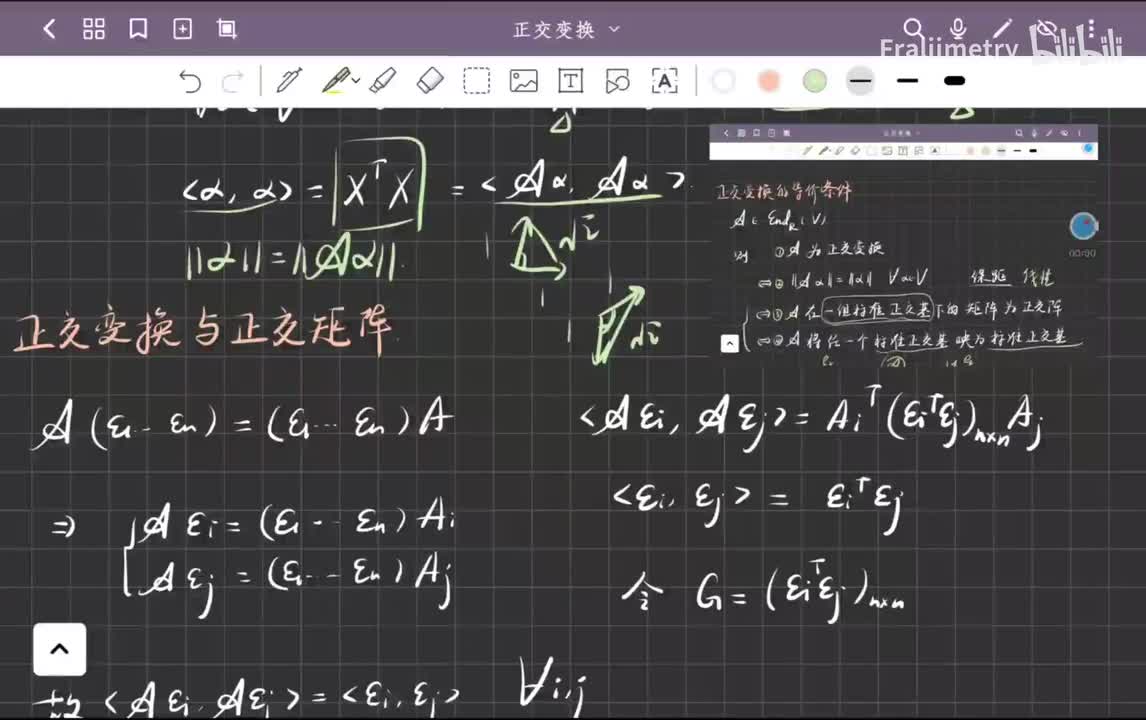 正交变换
Fraliimetry bilibili
<α, α> = XᵀX = <𝒜α, 𝒜α>
||α|| = ||𝒜α||.
1 √2
1
1
1 √2
正交变换的等价条件
𝒜 ∈ End_R(V)
则 ① 𝒜 为正交变换
⇔ ② ||𝒜α|| = ||α|| ∀α∈V 保距 线性
⇔ ③ 𝒜 在一组标准正交基下的矩阵为正交阵
⇔ ④ 𝒜 将任一个标准正交基映为标准正交基
00:00
正交变换与正交矩阵
𝒜(ε₁ … εₙ) = (ε₁ … εₙ)A
⇒ 𝒜εᵢ = (ε₁ … εₙ)Aᵢ
𝒜εⱼ = (ε₁ … εₙ)Aⱼ
<𝒜εᵢ, 𝒜εⱼ> = Aᵢᵀ(εᵢᵀεⱼ)ₙₓₙAⱼ
<εᵢ, εⱼ> = εᵢᵀεⱼ
令 G = (εᵢᵀεⱼ)ₙₓₙ
<𝒜εᵢ, 𝒜εⱼ> = <εᵢ, εⱼ> ∀i,j